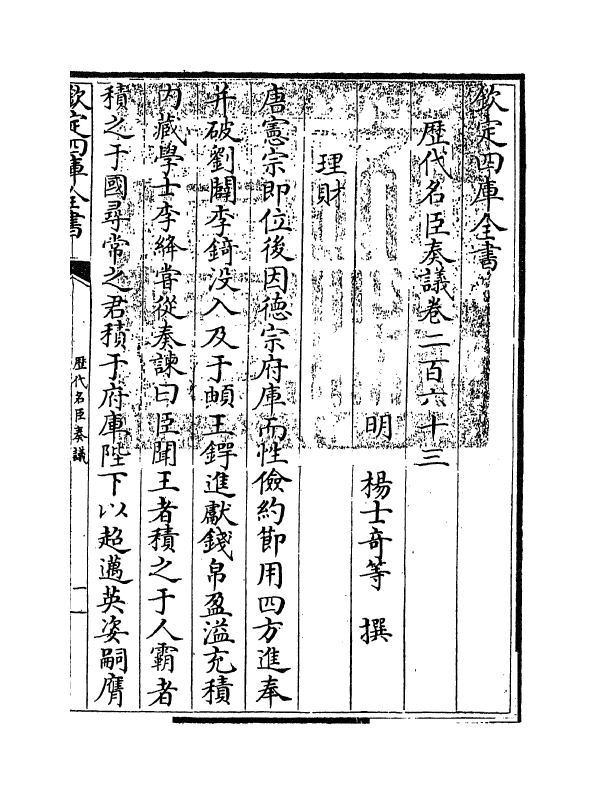 欽定四庫全書
歴代名臣奏議卷二百六十三
明 楊士奇等 撰
理財
唐憲宗即位後因德宗府庫而性儉約節用四方進奉
并破劉闢李錡没入及于頔王鍔進獻錢帛盈溢充積
内藏學士李絳嘗從奏諫曰臣聞王者積之于人霸者
積之于國尋常之君積于府庫陛下以超邁英姿嗣膺
欽定四庫全書
歴代名臣奏議
一